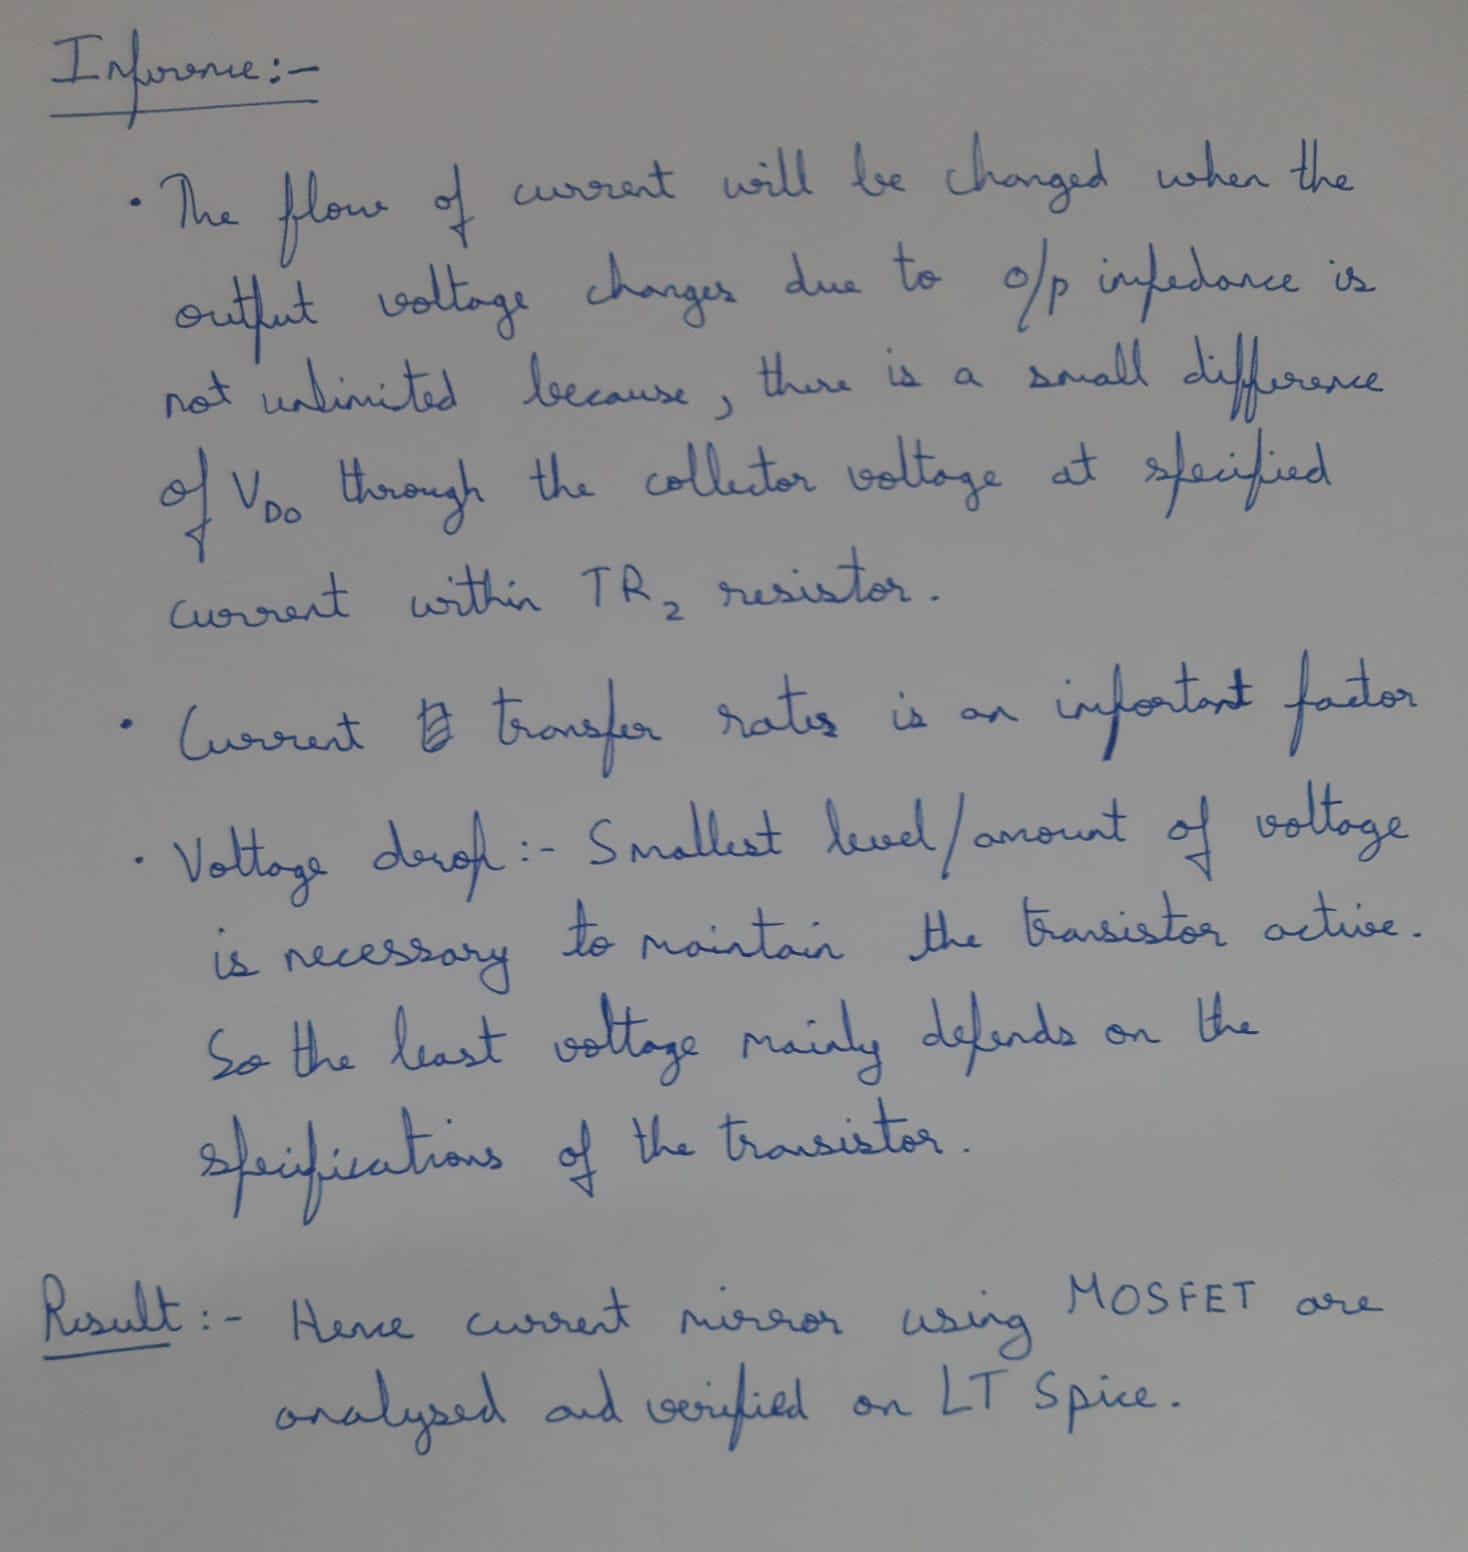 Inference:-
• The flow of current will be changed when the
output voltage changes due to o/p impedance is
not unlimited because, there is a small difference
of VDO through the collector voltage at specified
current within TR2 resistor.
• Current transfer rates is an important factor
• Voltage drop:- Smallest level/amount of voltage
is necessary to maintain the transistor active.
So the least voltage mainly depends on the
specifications of the transistor.
Result:- Hence current mirror using MOSFET are
analysed and verified on LT Spice.